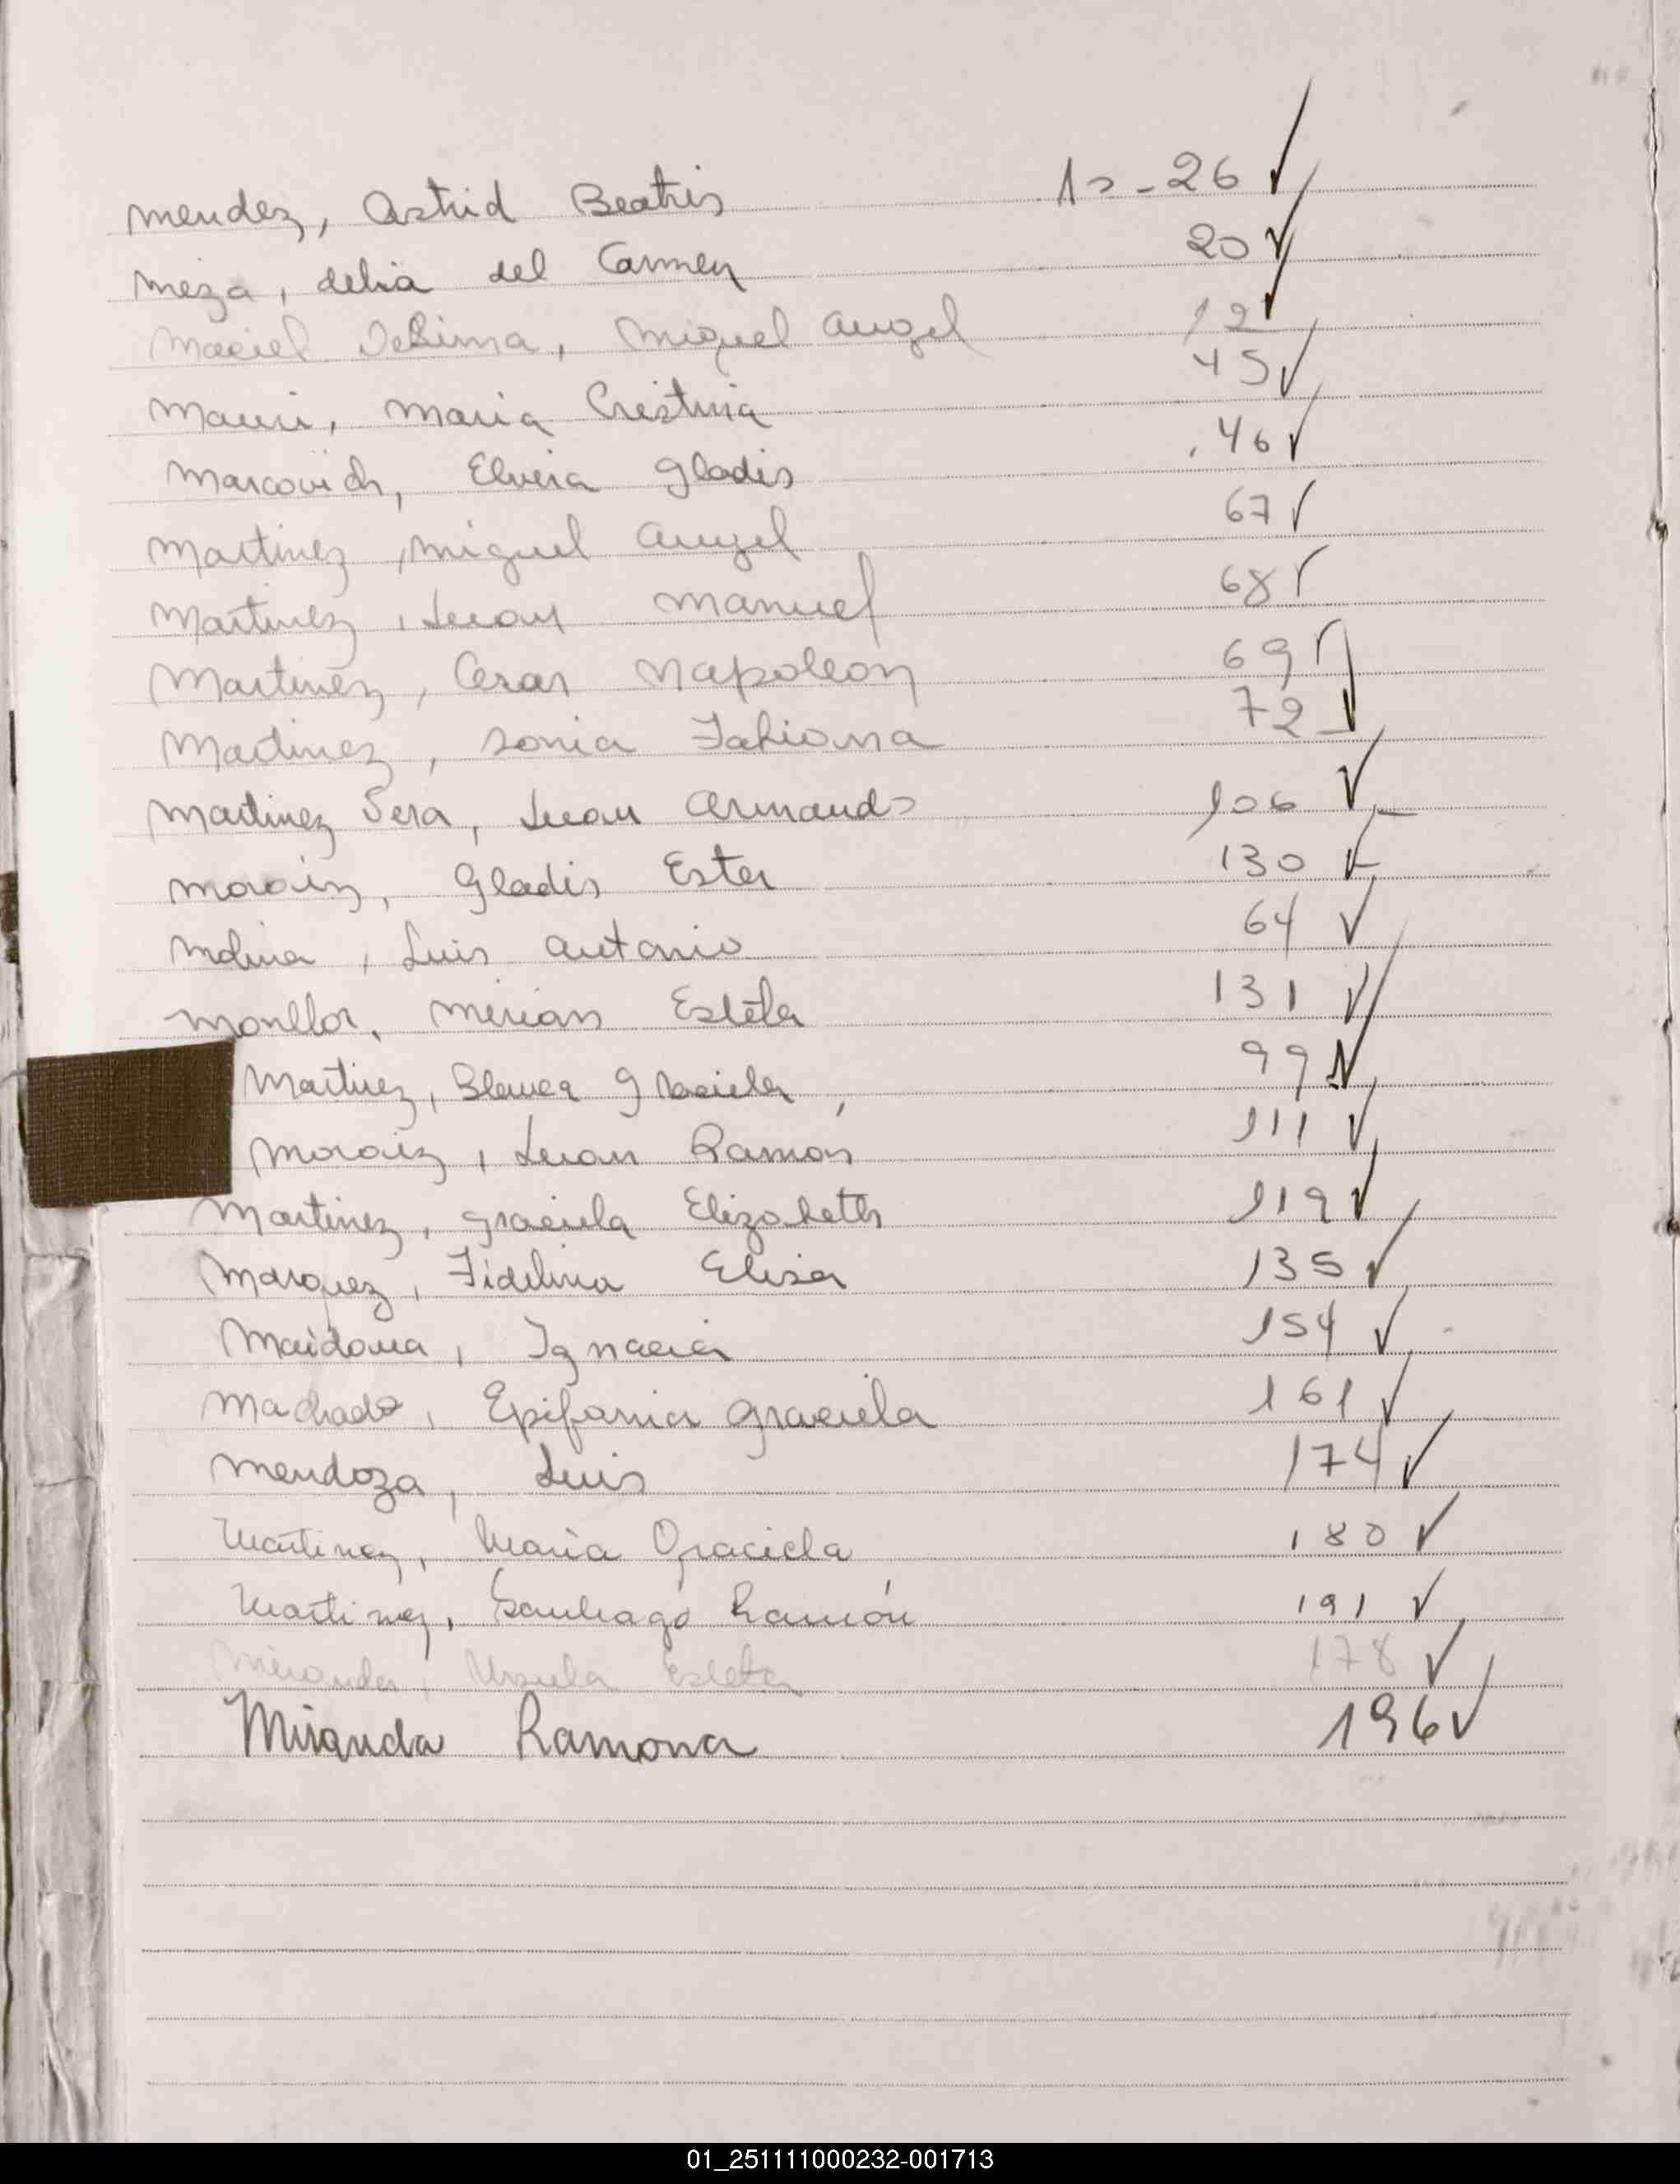 Mendez, Astrid Beatris 10-26 ✓
Meza, delia del Carmen 20 ✓
Maciel Miguel Angel 12
Mauri, Maria Cristina 45 ✓
Marcovich, Elvira Gladis 46 ✓
Martinez, Miguel Angel 67 ✓
Martinez, Juan Manuel 68 ✓
Martinez, Cesar Napoleon 69 ✓
Martinez, Sonia Fabiana 72 ✓
Martinez Vera, Juan Armando 106 ✓
Gladis Ester 130 ✓
Molina, Luis Antonio 64 ✓
Monllor, Mirian Estela 131 ✓
Martinez, Blanca Graciela, 99 ✓
Juan Ramón 111 ✓
Martinez, Graciela Elizabeth 119 ✓
Marquez, Fidelina Elisa 135 ✓
Maidana, Ignacia 154 ✓
Machado, Epifania Graciela 161 ✓
Mendoza, Luis 174 ✓
Martinez, Maria Graciela 180 ✓
Martinez, Santiago Ramón 191 ✓
Miranda, Ursula Estela 178 ✓
Miranda Ramona 196 ✓
01_251111000232-001713